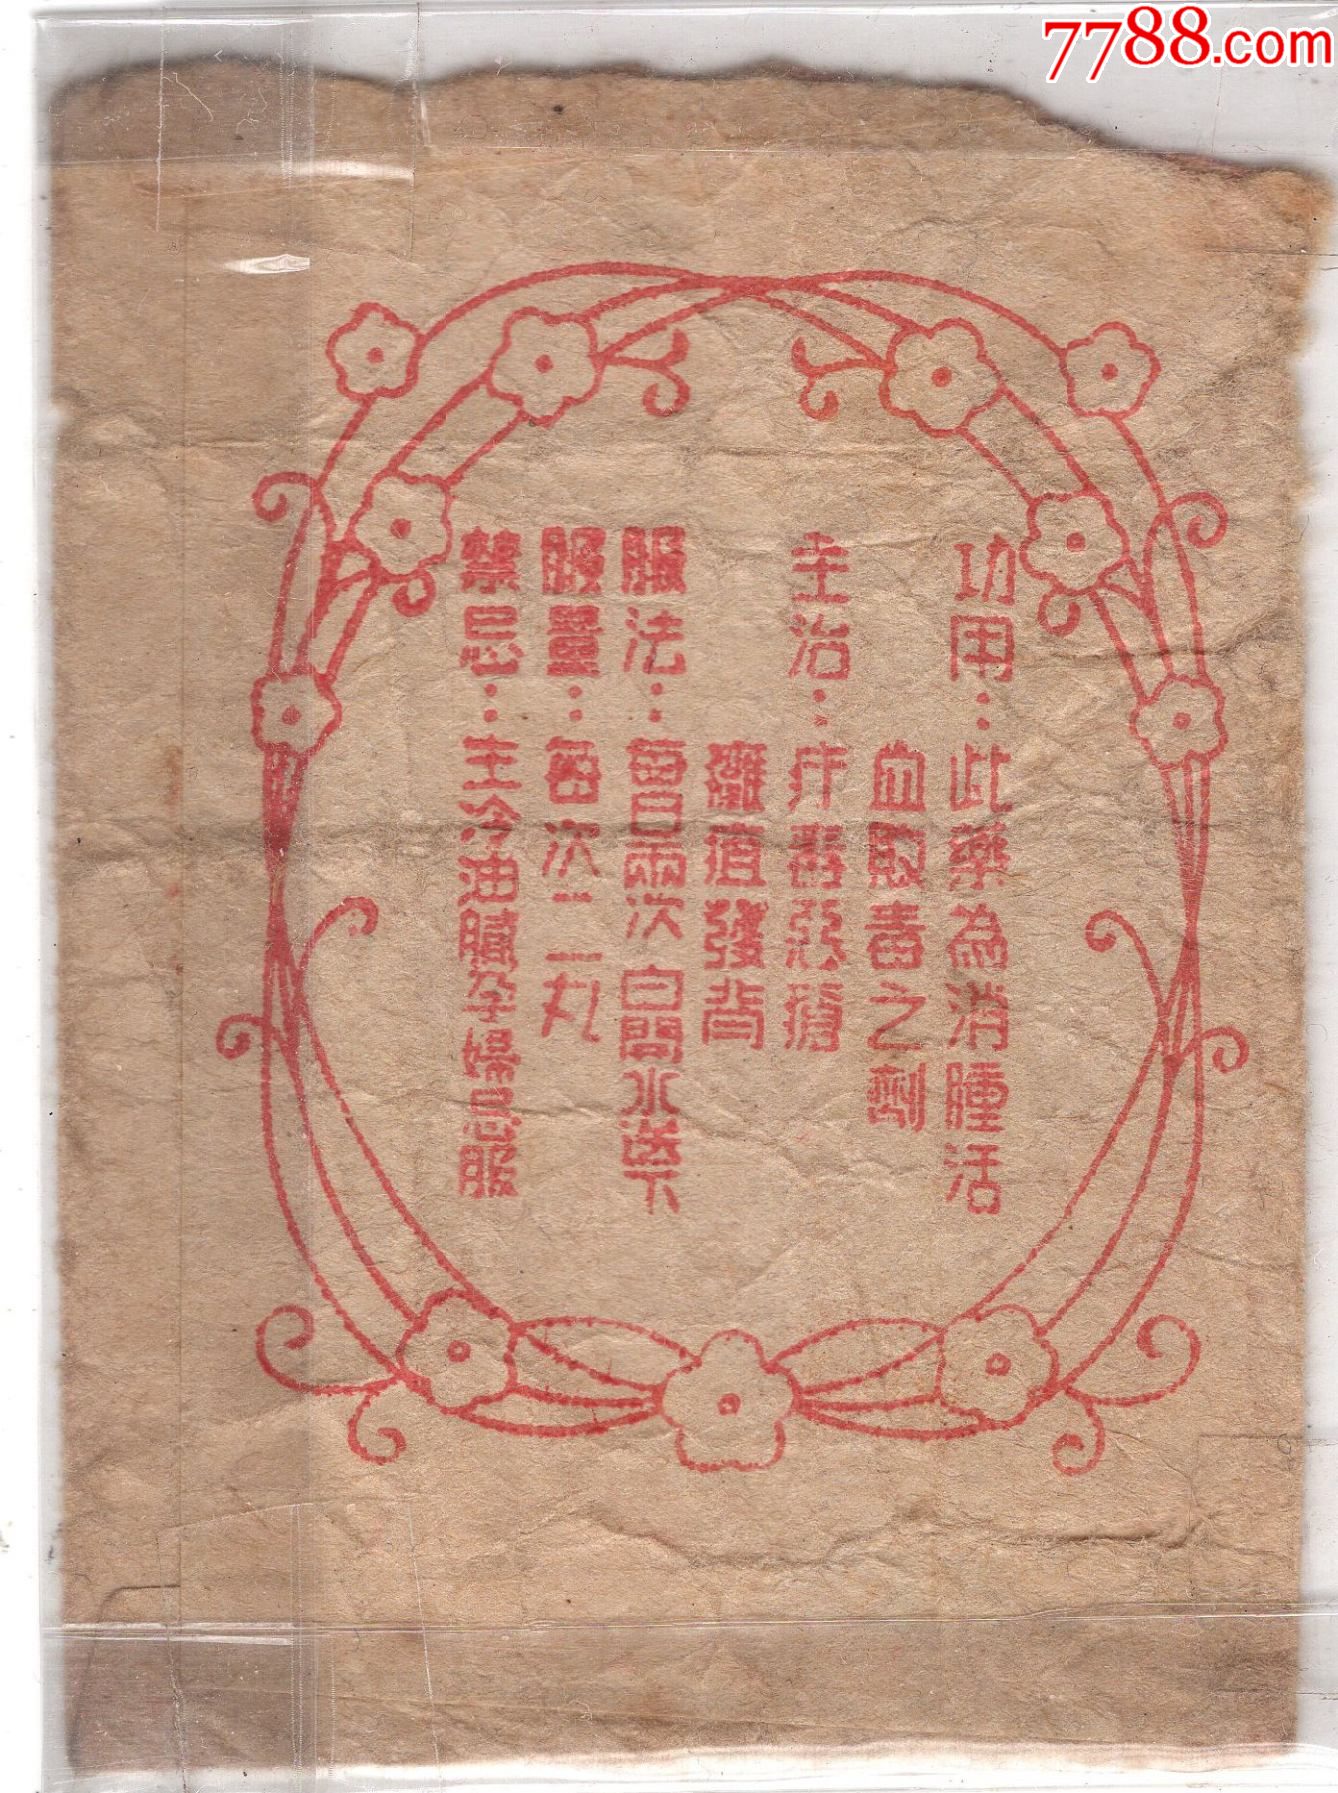 7788.com
功用：此藥為消腫活
血敗毒之劑
主治：疔毒惡瘡
癰疽發背
服法：每日兩次白開水送下
服量：每次二丸
禁忌：生冷油膩孕婦忌服